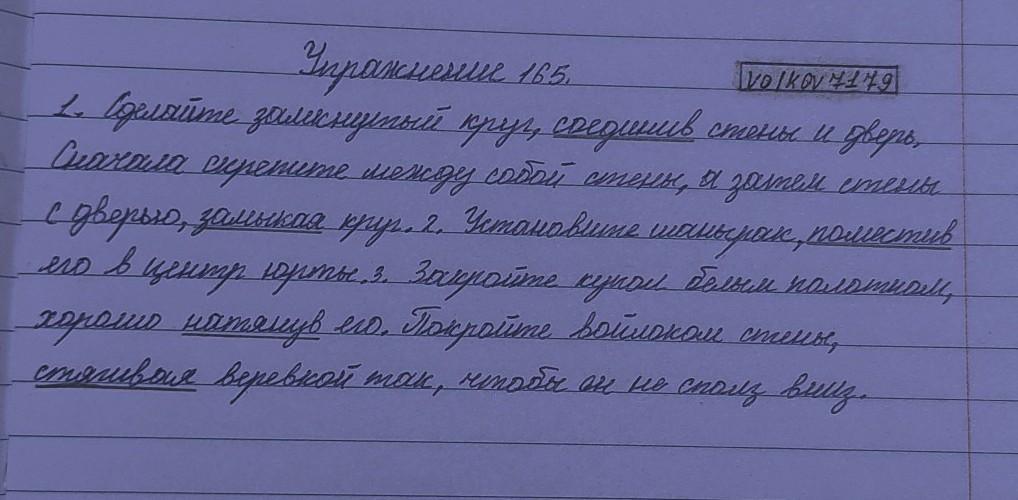 Упражнение 165.
VOlKOV7179
1. Сделайте замкнутый круг, соединив стены и дверь.
Сначала скрепите между собой стены, а затем стены
с дверью, замыкая круг. 2. Установите шанырак, поместив
его в центр юрты. 3. Закройте купол белым полотном,
хорошо натянув его. Покройте войлоком стены,
стягивая веревкой так, чтобы он не сполз вниз.